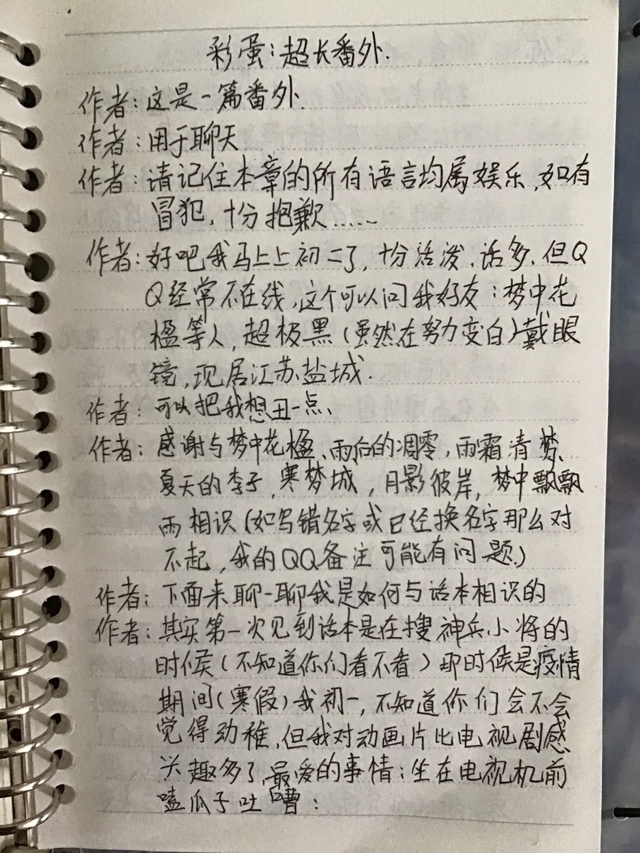 彩蛋:超长番外.
作者:这是一篇番外.
作者:用于聊天
作者:请记住本章的所有语言均属娱乐,如有
冒犯,十分抱歉......
作者:好吧我马上上初二了,十分活泼,话多.但Q
Q经常不在线,这个可以问我好友:梦中花
楹等人,超极黑(虽然在努力变白)戴眼
镜,现居江苏盐城.
作者:可以把我想丑一点、
作者:感谢与梦中花楹、雨后的凋零,雨霜清梦、
夏天的李子,寒梦城,月影彼岸,梦中飘飘
雨相识(如写错名字或已经换名字那么对
不起,我的QQ备注可能有问题.)
作者:下面来聊一聊我是如何与话本相识的
作者:其实第一次见到话本是在搜神兵小将的
时候(不知道你们看不看)那时候是疫情
期间(寒假)我初一,不知道你们会不会
觉得幼稚,但我对动画片比电视剧感
兴趣多了,最爱的事情:坐在电视机前
嗑瓜子吐嘈: